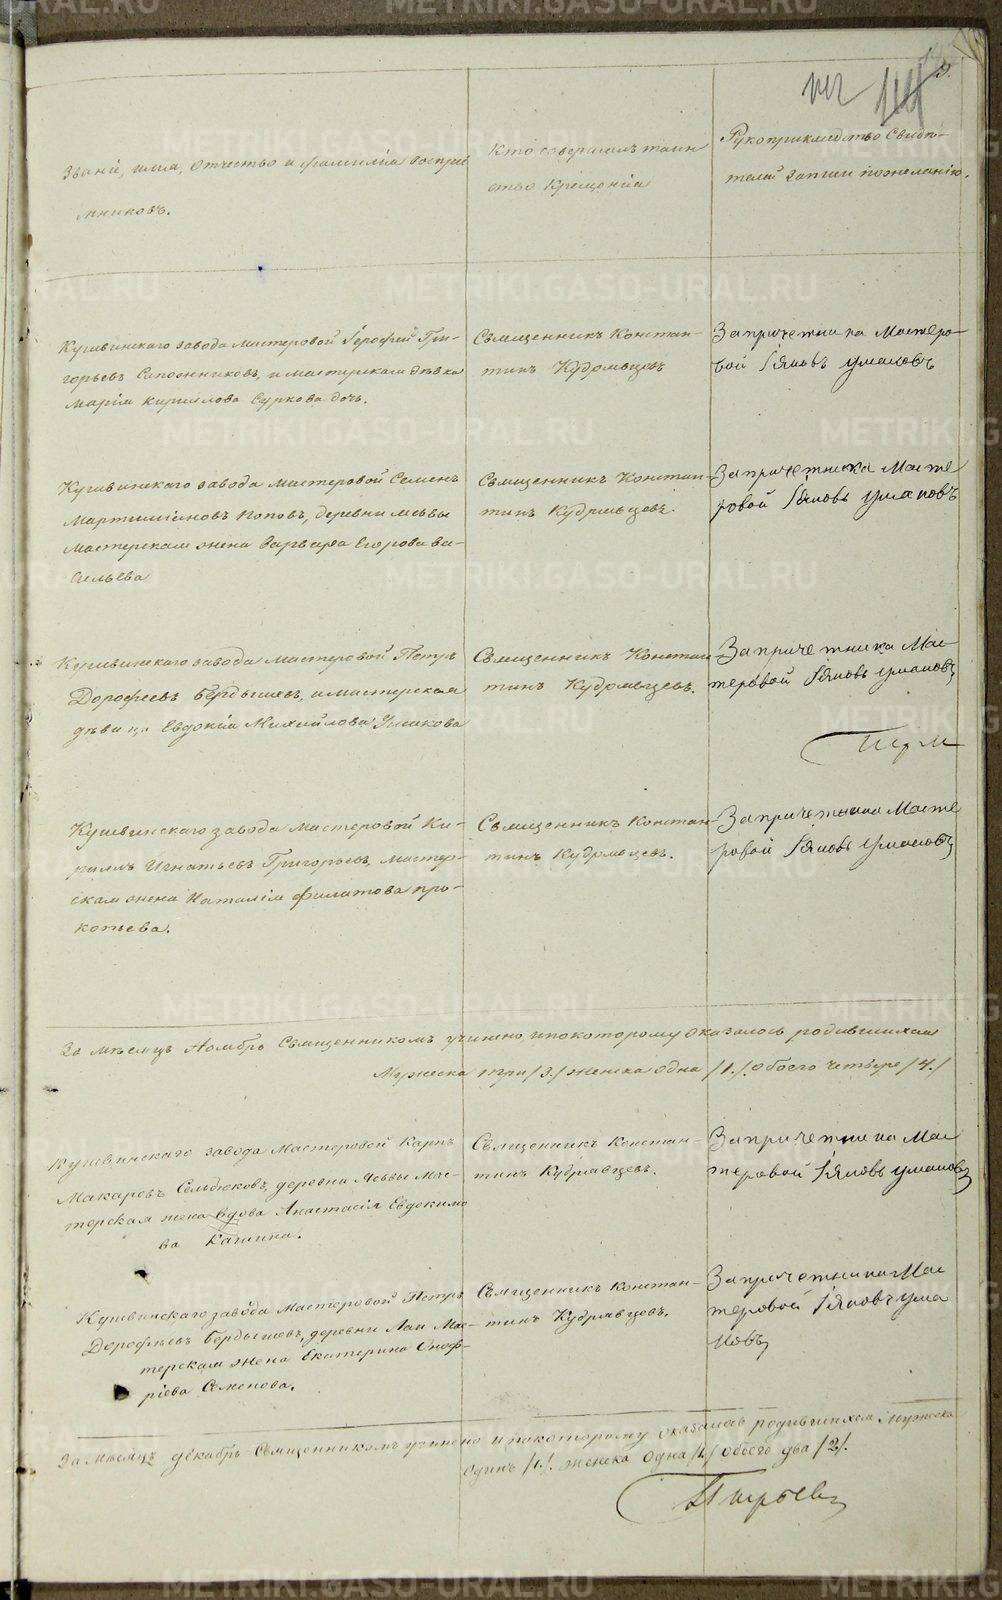 Званіе, имя, отчество и фамилія воспріе
мниковъ.
Кто совершалъ таин
ство крещенія
Рукоприкладство свидѣ-
телей записи по желанію.
Кушвинскаго завода мастеровой Герофей Гри-
горьевъ Сапожниковъ, и мастерская дѣвка
Марія Кириллова Суркова дочь.
Священникъ Констан-
тинъ Кудрявцевъ
За причетника Мастеро-
вой
Кушвинскаго завода мастеровой Семенъ
Мартиміановъ Поповъ, деревни
мастерская жена Варвара Егорова ва-
сильева
Священникъ Констан-
тинъ Кудрявцевъ.
За причетника Масте
ровой
Кушвинскаго завода мастеровой Петръ
Дорофеевъ Бердышевъ, и мастерская
дѣвица Евдокія Михайлова Ушакова
Священникъ Констан-
тинъ Кудрявцевъ.
За причетника Мас
теровой
Кушвинскаго завода мастеровой Ки-
риллъ Игнатьевъ Григорьевъ, мастер-
ская жена Наталія Филатова про-
копьева.
Священникъ Констан-
тинъ Кудрявцевъ.
За причетника Масте
ровой
За мѣсяцъ Ноябрь Священникомъ учинено, и по которому оказалось родившихся
Мужеска три /3./ женска одна /1./ обоего четыре /4./
Кушвинскаго завода Мастеровой Карпъ
Макаровъ деревни Мас-
терская жена вдова Анастасія Евдокимо
ва
Священникъ Констан-
тинъ Кудрявцевъ.
За причетника Мас
теровой
Кушвинскаго завода Мастеровой Петръ
Дорофѣевъ Бердышевъ, деревни Лаи Мас-
терская жена Екатерина Оноф-
ріева Семенова.
Священникъ Констан-
тинъ Кудрявцевъ.
За причетника Мас
теровой
За мѣсяцъ декабрь Священникомъ учинено и по которому оказалось родившихся Мужеска
одинъ /1./ женска одна /1./ обоего два /2/.
METRIKI.GASO-URAL.RU